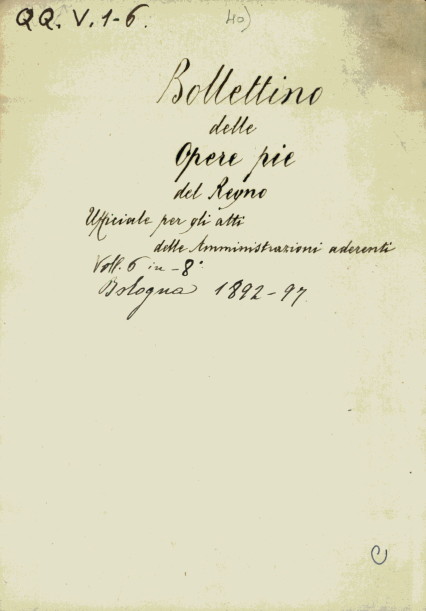 QQ. V. 1-6.
40)
Bollettino
delle
Opere pie
del Regno
Ufficiale per gli atti
delle Amministrazioni aderenti
Voll. 6 in-8°
Bologna 1892-97
C